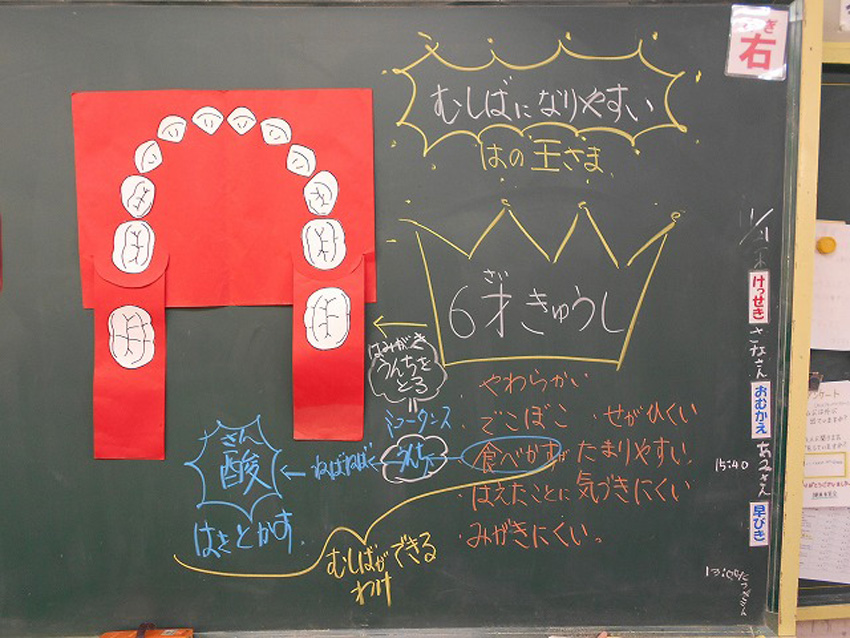 右
むしばになりやすい
はの王さま
さい
6才きゅうし
はみがき
うんちを
とる
ミュータンス
うんち
ねばねば
さん
酸
はをとかす
・やわらかい
・でこぼこ ・せがひくい
・食べかすがたまりやすい
・はえたことに気づきにくい
・みがきにくい。
むしばができる
わけ
けっせき
おむかえ
15:40
早びき